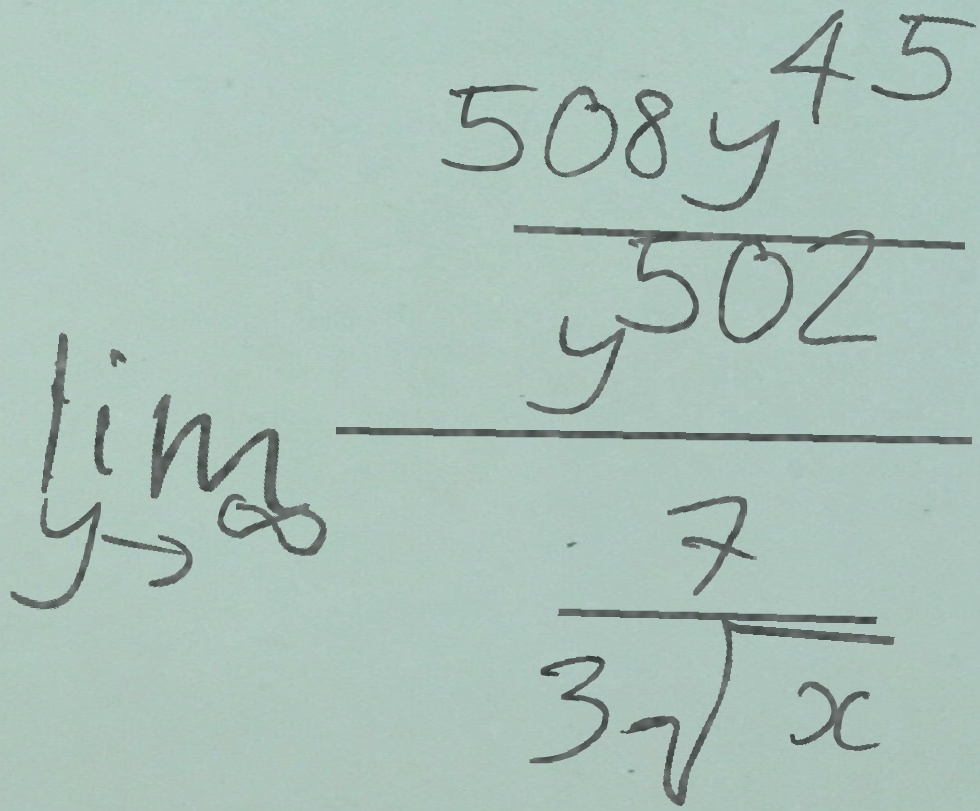 \lim_{y \to \infty} \frac{\frac{508y^{45}}{y^{502}}}{\frac{7}{3\sqrt{x}}}